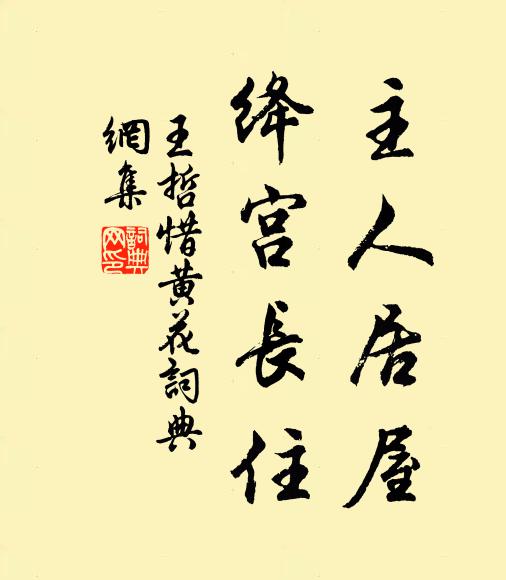 主人居屋
绛宫長住
王哲惜黄花詞典
網集
詞典
网印